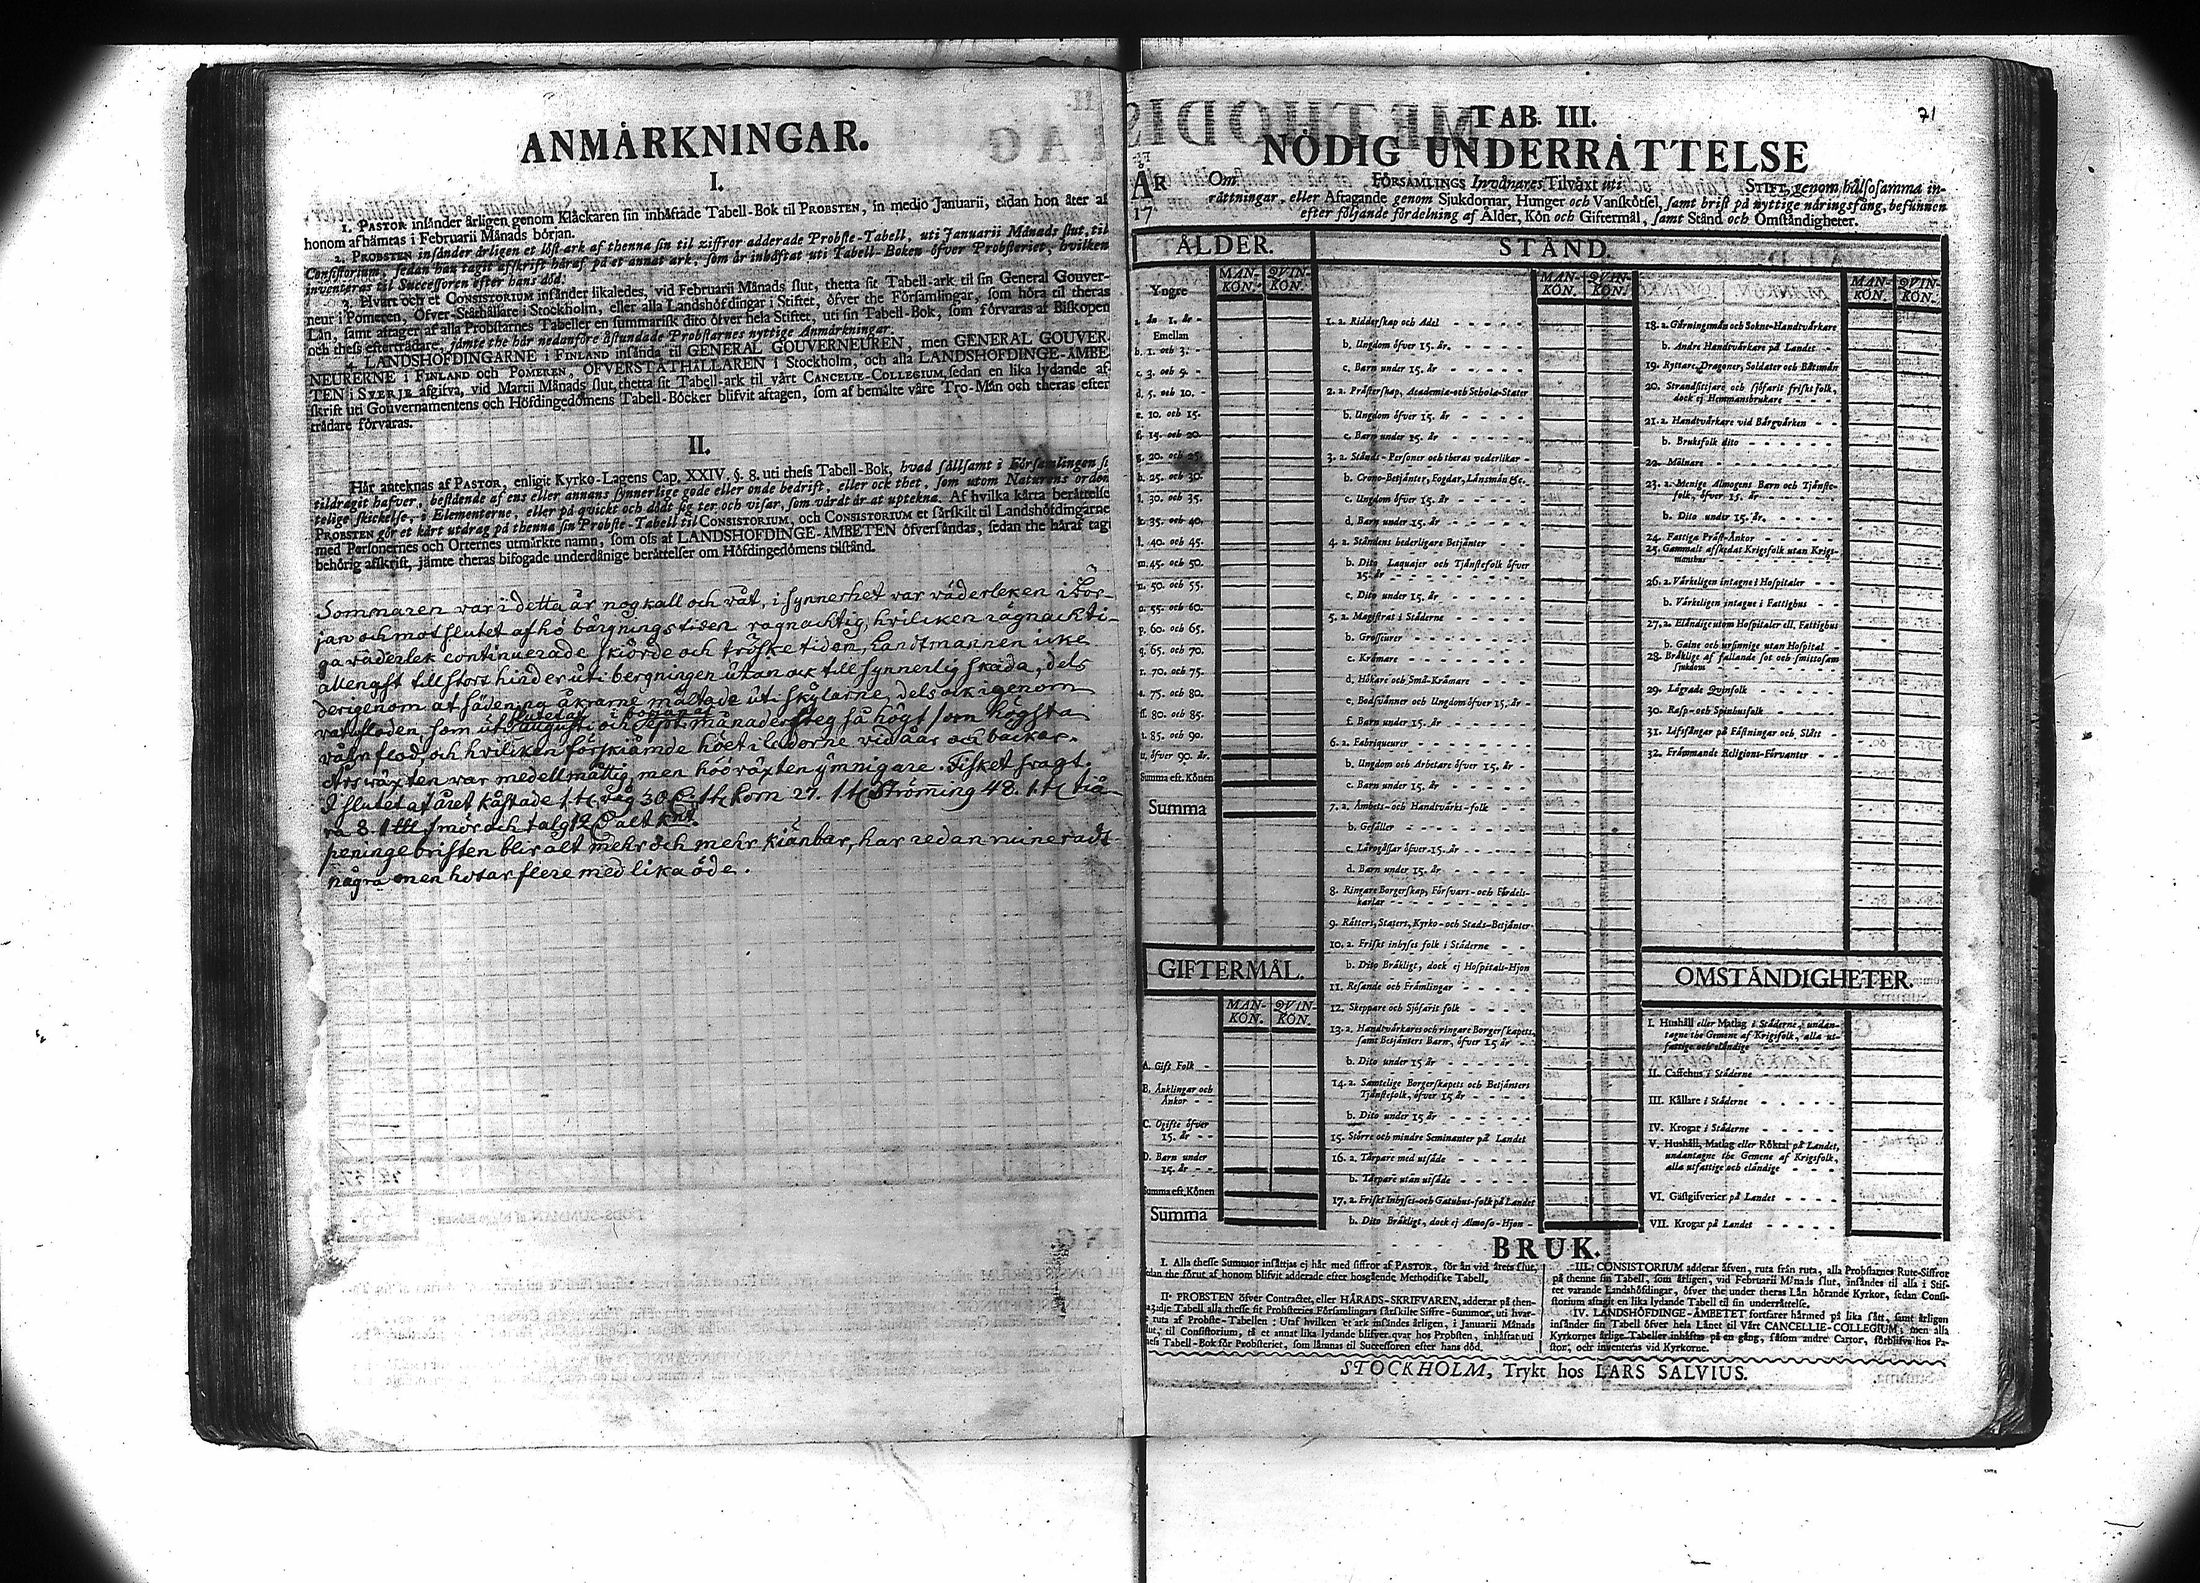 ANMÄRKNINGAR.
I.
1. PASTOR insänder årligen genom Klåckaren sin inhäftade Tabell-Bok til PROBSTEN, in medio Januarii, tådan hon åter af
honom afhämtas i Februarii Månads början.
2. PROBSTEN insänder årligen et löst ark af thenna sin til ziffror adderade Probste-Tabell, uti Januarii Månads slut, til
Consistorium, sedan han tagit afskrift häraf på et annat ark, som är inhäftat uti Tabell-Boken öfver Probsteriet, hvilken
inventeras til Successoren efter hans död.
3. Hvart och et CONSISTORIUM insänder likaledes, vid Februarii Månads slut, thetta sit Tabell-ark til sin General Gouver-
neur i Pomeren, Öfver-Ståthållare i Stockholm, eller alla Landshöfdingar i Stiftet, öfver the Församlingar, som höra til theras
Län, samt aftager af alla Probstarnes Tabeller en summarisk dito öfver hela Stiftet, uti sin Tabell-Bok, som förvaras af Biskopen
och thess efterträdare, jämte the här nedanföre åstundade Probstarnes nyttige Anmärkningar.
4. LANDSHÖFDINGARNE i FINLAND insända til GENERAL GOUVERNEUREN, men GENERAL GOUVER-
NEURERNE i FINLAND och POMEREN, ÖFVERSTÅTHÅLLAREN i Stockholm, och alla LANDSHÖFDINGE-ÄMBE-
TEN i SVERJE afgifva, vid Martii Månads slut, thetta sit Tabell-ark til vårt CANCELIE-COLLEGIUM, sedan en lika lydande af-
skrift uti Gouvernamentens och Höfdingedömens Tabell-Böcker blifvit aftagen, som af bemälte våre Tro-Män och theras efter
trädare förvaras.
II.
Här anteknas af PASTOR, enligit Kyrko-Lagens Cap. XXIV. §. 8. uti thess Tabell-Bok, hvad sällsamt i Församlingen sig
tildragit hafver, bestående af ens eller annans synnerlige gode eller onde bedrift, eller ock thet, som utom Naturens orden
telige skickelse, i Elementerne, eller på qvickt och dödt sig ter och visar, som värdt är at uptekna. Af hvilka kårta berättelse
PROBSTEN gör et kårt utdrag på thenna sin Probste-Tabell til CONSISTORIUM, och CONSISTORIUM et särskilt til Landshöfdingarne
med Personernes och Orternes utmärkte namn, som oss af LANDSHÖFDINGE-ÄMBETEN öfversändas, sedan the häraf tagi
behörig afskrift, jämte theras bifogade underdånige berättelser om Höfdingedömens tilstånd.
Sommaren var i detta år nog kall och våt, i synnerhet var väderleken i Bör-
jan och mot slutet af hö bärgnings tiden rägnachtig, hvilken rägnackti-
ga väderlek continuerade skiörde och tröske tiden, Landtmannen icke
allenast till stort hinder uti bergningen utan ock till synnerlig skada, dels
derigenom at säden på åkrarne mältade uti skylarne, dels ock igenom
vatufloden, som ut slutet af Augusti och början af Sept. månader steg så högt som högsta
vårn flod, och hvilken förskiämde höet i ladorne vid åar och bäckar.
Årswäxten war medelmåttig, men hööväxten ymnigare. Fisket svagt.
I slutet af året kåstade 1 t. råg 30 1 t. korn 27. 1 t. Strömming 48. 1 t. tiä-
ra 8 smör och talg 12 alt Kmt.
peninge bristen blir alt mehr och mehr kiänbar, har redan ruineradt
några men hotar flere med lika öde.
71
TAB. III.
NÖDIG UNDERRÄTTELSE
ÅR 17 Om FÖRSAMLINGS Invånares Tilväxt uti STIFT, genom hälsosamma in-
rättningar, eller Aftagande genom Sjukdomar, Hunger och Vanskötsel, samt brist på nyttige näringsfång, befunnen
efter följande fördelning af Ålder, Kön och Giftermål, samt Stånd och Omständigheter.
ÅLDER.
MAN-KÖN. QVIN-KÖN.
Yngre
än 1. år -
Emellan
b. 1. och 3. -
c. 3. och 5. -
d. 5. och 10. -
e. 10. och 15.
f. 15. och 20.
g. 20. och 25.
h. 25. och 30.
i. 30. och 35.
k. 35. och 40.
l. 40. och 45.
m. 45. och 50.
n. 50. och 55.
o. 55. och 60.
p. 60. och 65.
q. 65. och 70.
r. 70. och 75.
s. 75. och 80.
ß. 80. och 85.
t. 85. och 90.
u. öfver 90. år.
Summa eft. Könen
Summa
GIFTERMÅL.
MAN-KÖN. QVIN-KÖN.
A. Gift Folk -
B. Änklingar och
Änkor - -
C. Ogifte öfver
15. år - -
D. Barn under
15. år - -
Summa eft. Könen
Summa
STÅND.
MAN-KÖN. QVIN-KÖN.
1. a. Ridderskap och Adel
b. Ungdom öfver 15. år.
c. Barn under 15. år
2. a. Prästerskap, Academia- och Schola-Stater
b. Ungdom öfver 15. år
c. Barn under 15. år
3. a. Stånds-Personer och theras vederlikar
b. Crono-Betjänter, Fogdar, Länsmän &c.
c. Ungdom öfver 15. år
d. Barn under 15. år
4. a. Ståndens hederligare Betjänter
b. Dito Laquajer och Tjänstefolk öfver
15. år
c. Dito under 15. år
5. a. Magistrat i Städerne
b. Grosseurer
c. Krämare
d. Hökare och Små-Krämare
e. Bodsvänner och Ungdom öfver 15. år
f. Barn under 15. år
6. a. Fabriqueurer
b. Ungdom och Arbetare öfver 15. år
c. Barn under 15. år
7. a. Ämbets- och Handtvärks-folk
b. Gesäller
c. Lärogåssar öfver 15. år
d. Barn under 15. år
8. Ringare Borgerskap, Försvars- och Fördels-
karlar
9. Rätters, Staters, Kyrko- och Stads-Betjänter
10. a. Friskt inhyses folk i Städerne
b. Dito Bräkligt, dock ej Hospitals-Hjon
11. Resande och Främlingar
12. Skeppare och Sjöfarit folk
13. a. Handtvärkares och ringare Borgerskapets,
samt Betjänters Barn, öfver 15 år
b. Dito under 15. år
14. a. Samtelige Borgerskapets och Betjänters
Tjänstefolk, öfver 15 år
b. Dito under 15 år
15. Större och mindre Seminanter på Landet
16. a. Tårpare med utsäde
b. Tårpare utan utsäde
17. a. Friskt Inhyses- och Gatuhus-folk på Landet
b. Dito Bräkligt, dock ej Almoso-Hjon
MAN-KÖN. QVIN-KÖN.
18. a. Gärningsmän och Sokne-Handtvärkare
b. Andre Handtvärkare på Landet
19. Ryttare, Dragoner, Soldater och Båtsmän
20. Strandsittjare och sjöfarit friskt folk,
dock ej Hemmansbrukare
21. a. Handtvärkare vid Bärgvärken
b. Bruksfolk dito
22. Mölnare
23. a. Menige Almogens Barn och Tjänste-
folk, öfver 15. år
b. Dito under 15. år.
24. Fattiga Präst-Änkor
25. Gammalt afskedat Krigsfolk utan Krigs-
manshus
26. a. Värkeligen intagne i Hospitaler
b. Värkeligen intagne i Fattighus
27. a. Eländige utom Hospitaler ell. Fattighus
b. Galne och ursinnige utan Hospital
28. Bräklige af fallande sot och smittosam
sjukdom
29. Lägrade Qvinfolk
30. Rasp- och Spinhusfolk
31. Lifsfångar på Fästningar och Slått
32. Främmande Religions-Förvanter
OMSTÄNDIGHETER.
I. Hushåll eller Matlag i Städerne, undan-
tagne the Gemene af Krigsfolk, alla ut-
fattige och eländige
II. Caffehus i Städerne
III. Källare i Städerne
IV. Krogar i Städerne
V. Hushåll, Matlag eller Röktal på Landet,
undantagne the Gemene af Krigsfolk,
alla utfattige och eländige
VI. Gästgifverier på Landet
VII. Krogar på Landet
BRUK.
I. Alla thesse Summor insättjas ej här med siffror af PASTOR, för än vid årets slut,
sedan the förut af honom blifvit adderade efter hosgående Methodiske Tabell.
II. PROBSTEN öfver Contractet, eller HÄRADS-SKRIFVAREN, adderar på then-
tredje Tabell alla thesse sit Probsteries Församlingars särskilte Siffre-Summor, uti hvar-
je ruta af Probste-Tabellen: Utaf hvilken et ark insändes årligen, i Januarii Månads
slut, til Consistorium, tå et annat lika lydande blifver qvar hos Probsten, inhäftat uti
thess Tabell-Bok för Probsteriet, som lämnas til Successoren efter hans död.
III. CONSISTORIUM adderar äfven, ruta från ruta, alla Probstarnes Rute-Siffror
på thenne sin Tabell, som årligen, vid Februarii Månads slut, insändes til alla i Stif-
tet varande Landshöfdingar, öfver the under theras Län hörande Kyrkor, sedan Consi-
storium aftagit en lika lydande Tabell til sin underrättelse.
IV. LANDSHÖFDINGE-ÄMBETET fortfarer härmed på lika sätt, samt årligen
insänder sin Tabell öfver hela Länet til Vårt CANCELLIE-COLLEGIUM; men alla
Kyrkornes årlige Tabeller inhäftas på en gång, såsom andre Cartor, förblifva hos Pa-
stor, och inventeras vid Kyrkorne.
STOCKHOLM, Trykt hos LARS SALVIUS.